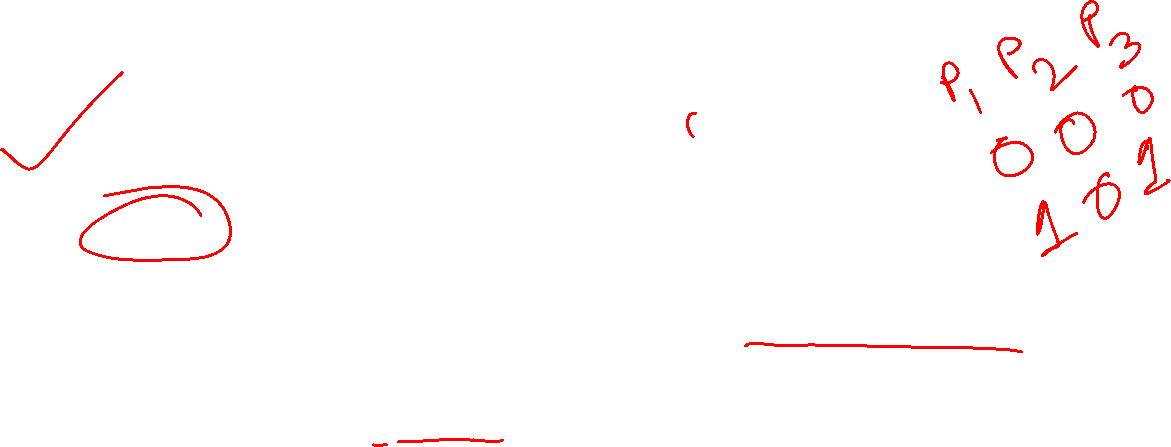 P1 P2 P3
0 0 0
1 0 1